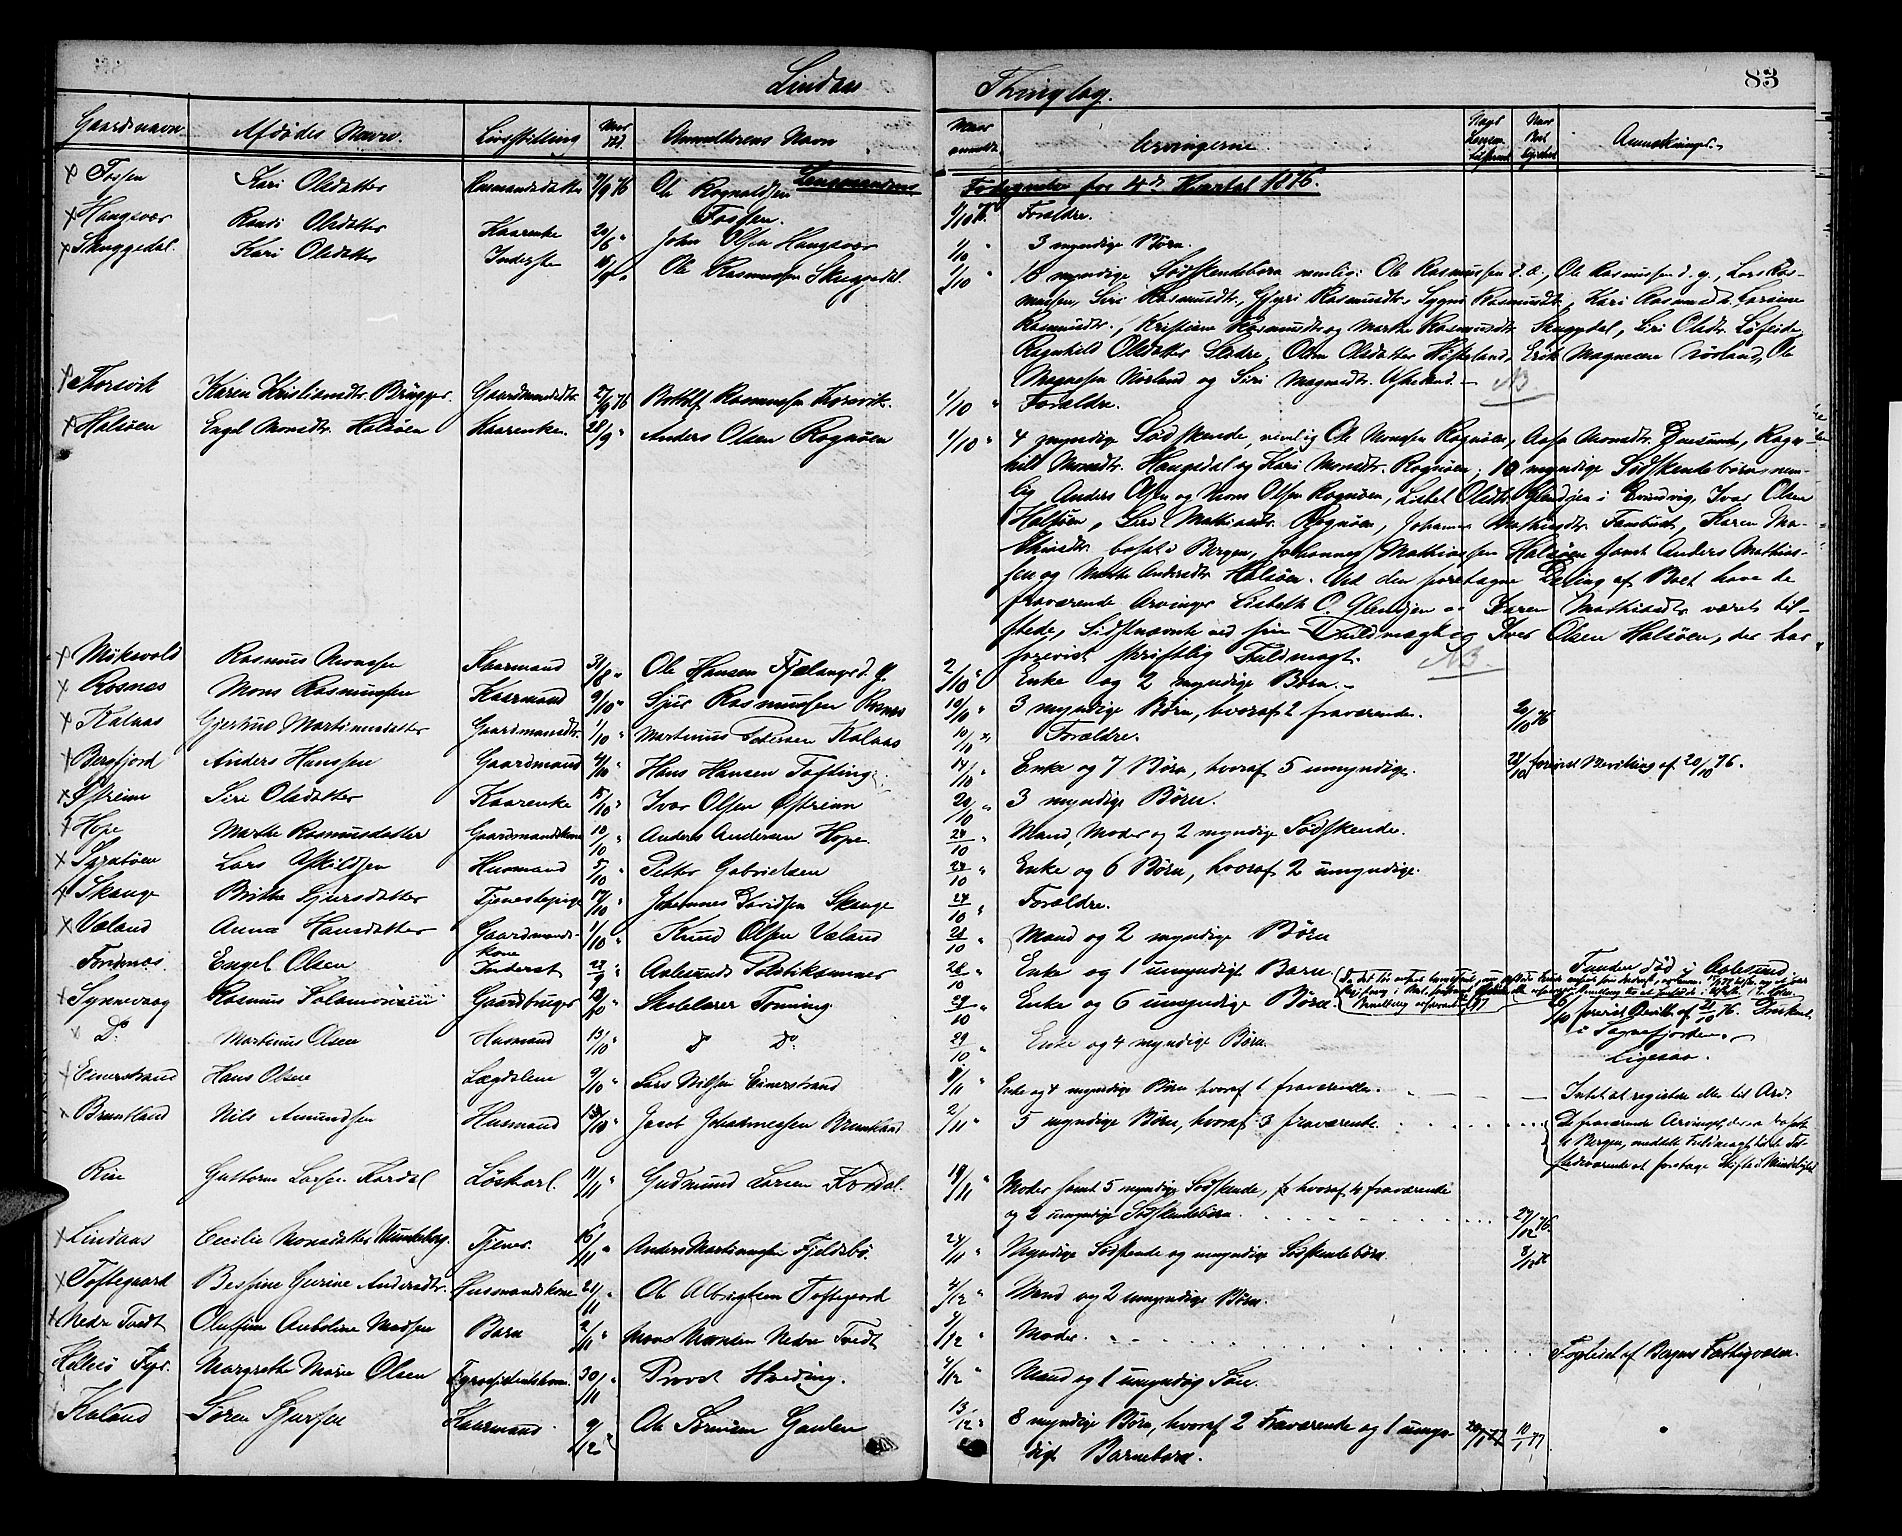 Lindaas Thinglag. 83
Gaardsnavn Afdødes Navn. Livsstilling Naar død. Anmelderens Navn Naar anmeldt. Arvingerne Anmærkninger.
Lensmandens Fortegnelse for 4de Kvartal 1876.
x Fossen Kari Olsdatter 7/9 76 Ole Rognaldsen Fossen. 1/10 76. Forældre.
x Haugsvær Randi Olsdatter Kaarenke 20/6 " John Olsen Haugsvær 1/10 " 3 myndige Børn.
x Skuggedal. Kari Olsdatter Inderste Ole Rasmussen Skuggedal. 1/10 " 16 myndige Sødskendebørn nemlig: Ole Rasmussen d. æ., Ole Rasmussen d. y., Lars Ras-
mussen, Siri Rasmusdtr., Gjyri Rasmusdtr., Sygni Rasmusdtr., Kari Rasmusdtr. Lorsine
Rasmusdtr., Kristine Rasmusdtr og Marthe Rasmusdtr Skuggdal, Siri Olsdtr
Ragnhild Olsdatter Oline Olsdatter Erik Magnesen Nørland, Ole
Magnesen Nørland og Siri Magnedtr.
x Thorsvik Karen Kristiansdtr. Brügger. Gaardmandsdtr 27/9 76 Botolf Rasmussen Thorsvik. 1/10 " Forældre. NB
x Halsøen Engel Monsdtr. Halsøen Kaarenke. 28/9 " Anders Olsen Rognøen 1/10 " 4 myndige Sødskende, nemlig Ole Monsen Rognøen, Aasa Monsdtr. Ragn-
hild Monsdtr. Haugsdal og Kari Monsdtr. Rognøen; 10 myndige Sødskendebørn nem-
lig Anders Olsen og Mons Olsen Rognøen, Lisbet Olsdtr. Glendjen i Evindvig, Ivar Olsen
Halsøen, Siri Mathiasdtr. Rognøen, Johanna Mathiasdtr. Karen Ma-
thiasdtr. bosat i Bergen, Johannes Mathiassen Halsøen samt Anders Mathias-
sen og Marthe Andersdtr. Halsøen. Ved den foretagne Deling af Boet have de
fraværende Arvinger Lisbeth O. Glendjen og Karen Mathiasdtr været til-
stede, Sidstnævnte ved sin Fuldmægtig Iver Olsen Halsøen, der har
forevist skriftlig Fuldmagt. NB.
x Mikkevold Rasmus Monsen Kaarmand 31/8 " Ole Hansen Fjælanger d. y. 2/10 " Enke og 2 myndige Børn.
x Rosnes Mons Rasmussen Kaarmand 9/10 " Sjur Rasmussen Rosnes 10/10 " 3 myndige Børn, hvoraf 2 fraværende. 20/10 76
x Kalaas Gjertrud Martinusdatter Gaardmandsdtr. 1/10 " Martinus Petersen Kalaas 10/10 " Forældre.
x Bergfjord Anders Hansen Gaardmand 4/10 " Hans Hansen Tofting 14/10 " Enke og 7 Børn, hvoraf 5 umyndige. 28/10 forevist Bevilling af 20/10 76.
x Østreim Siri Olsdatter Kaarenke 15/10 " Ivar Olsen Østreim 20/10 " 3 myndige Børn.
x Hope Marthe Rasmusdatter Gaardmandskone 10/10 " Anders Andersen Hope. 24/10 " Mand, Moder og 2 myndige Sødskende.
x Lars Askildsen Husmand 5/10 " Petter Gabrielsen 24/10 " Enke og 6 Børn, hvoraf 2 umyndige.
x Skauge Britha Sjursdatter Tjenestepige 17/10 " Johannes Davidsen Skauge 24/10 " Forældre.
x Væland Anna Hansdatter Gaardmands-
kone 1/10 " Knud Olsen Væland 28/10 " Mand og 2 myndige Børn
Fondnæs. Engel Olsen Inderst 23/9 " Aalesunds Politikammer 28/10 " Enke og 1 umyndigt Barn. Funden død i Aalesund.
x Synnevaag Rasmus Salamonsen Gaardbruger 13/10 " Skolelærer Tonning 29/10 " Enke og 6 umyndige Børn. forevist Bevill. af 21/10 76. Druknet
i Sognefjorden.
x Do. Martinus Olsen Husmand 13/10 " Do Do. 29/10 " Enke og 4 myndige Børn. Ligesaa.
x Einerstrand Hans Olsen Lægdslem 9/10 " Lars Nilsen Einerstrand 8/11 " Enke og 4 myndige Børn hvoraf 1 fraværende. Intet at registere eller til Arv.
x Bruntland Nils Amundsen Husmand 13/10 " Jacob Johannessen Bruntland 2/11 " 5 myndige Børn, hvoraf 3 fraværende. De fraværende Arvinger, der er bosatte
i Bergen, meddelt Fuldmagt til de Til-
stedeværende at foretage Skifte i Mindelighed.
Risø Guttorm Larsen Kordal Løskarl. 11/11 " Gudmund Larsen Kordal. 19/11 " Moder samt 5 myndige Sødskende, hvoraf 4 fraværende
og 2 umyndige Sødskendebørn. 29/12 76.
x Lindaas Cecilie Monsdatter Tjener. 15/11 " Anders Martinussen Fjeldsbø. 24/11 " Myndige Sødskende og umyndige Sødskendebørn.
x Toftegaard Bessine Gurine Andersdtr. Husmandskone 21/11 " Ole Albrigtsen Toftegaard 4/12 " Mand og 2 umyndige Børn.
x Nedre Tvedt Olufine Anboline Madsen Barn 2/11 " Mons Monsen Nedre Tvedt 3/12 " Moder. Forpleiet af Bergens Fattigvæsen.
Hellisø Fyr. Margrethe Marie Olsen Fyrassistentkone. 30/11 " Provst Hvoding. 4/12 " Mand og 1 umyndig Søn.
Kaland Søren Sjursen Kaarmand. 9/12 " Ole Sørensen Gaulen 13/12 " 8 myndige Børn, hvoraf 2 Fraværende og 1 umyn-
digt Barnebarn. 10/1 77